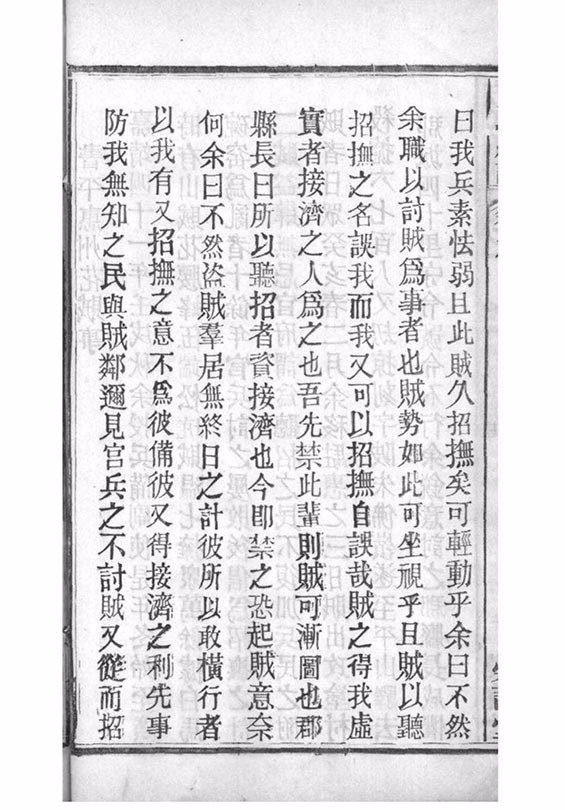 曰我兵素怯弱且此賊久招撫矣可輕動乎余曰不然
余職以討賊爲事者也賊勢如此可坐視乎且賊以聽
招撫之名誤我而我又可以招撫自誤哉賊之得我虛
實者接濟之人爲之也吾先禁此輩則賊可漸圖也郡
縣長曰所以聽招者資接濟也今卽禁之恐起賊意奈
何余曰不然盜賊羣居無終日之計彼所以敢橫行者
以我有又招撫之意不爲彼備彼又得接濟之利先事
防我無知之民與賊鄰邇見官兵之不討賊又從而招